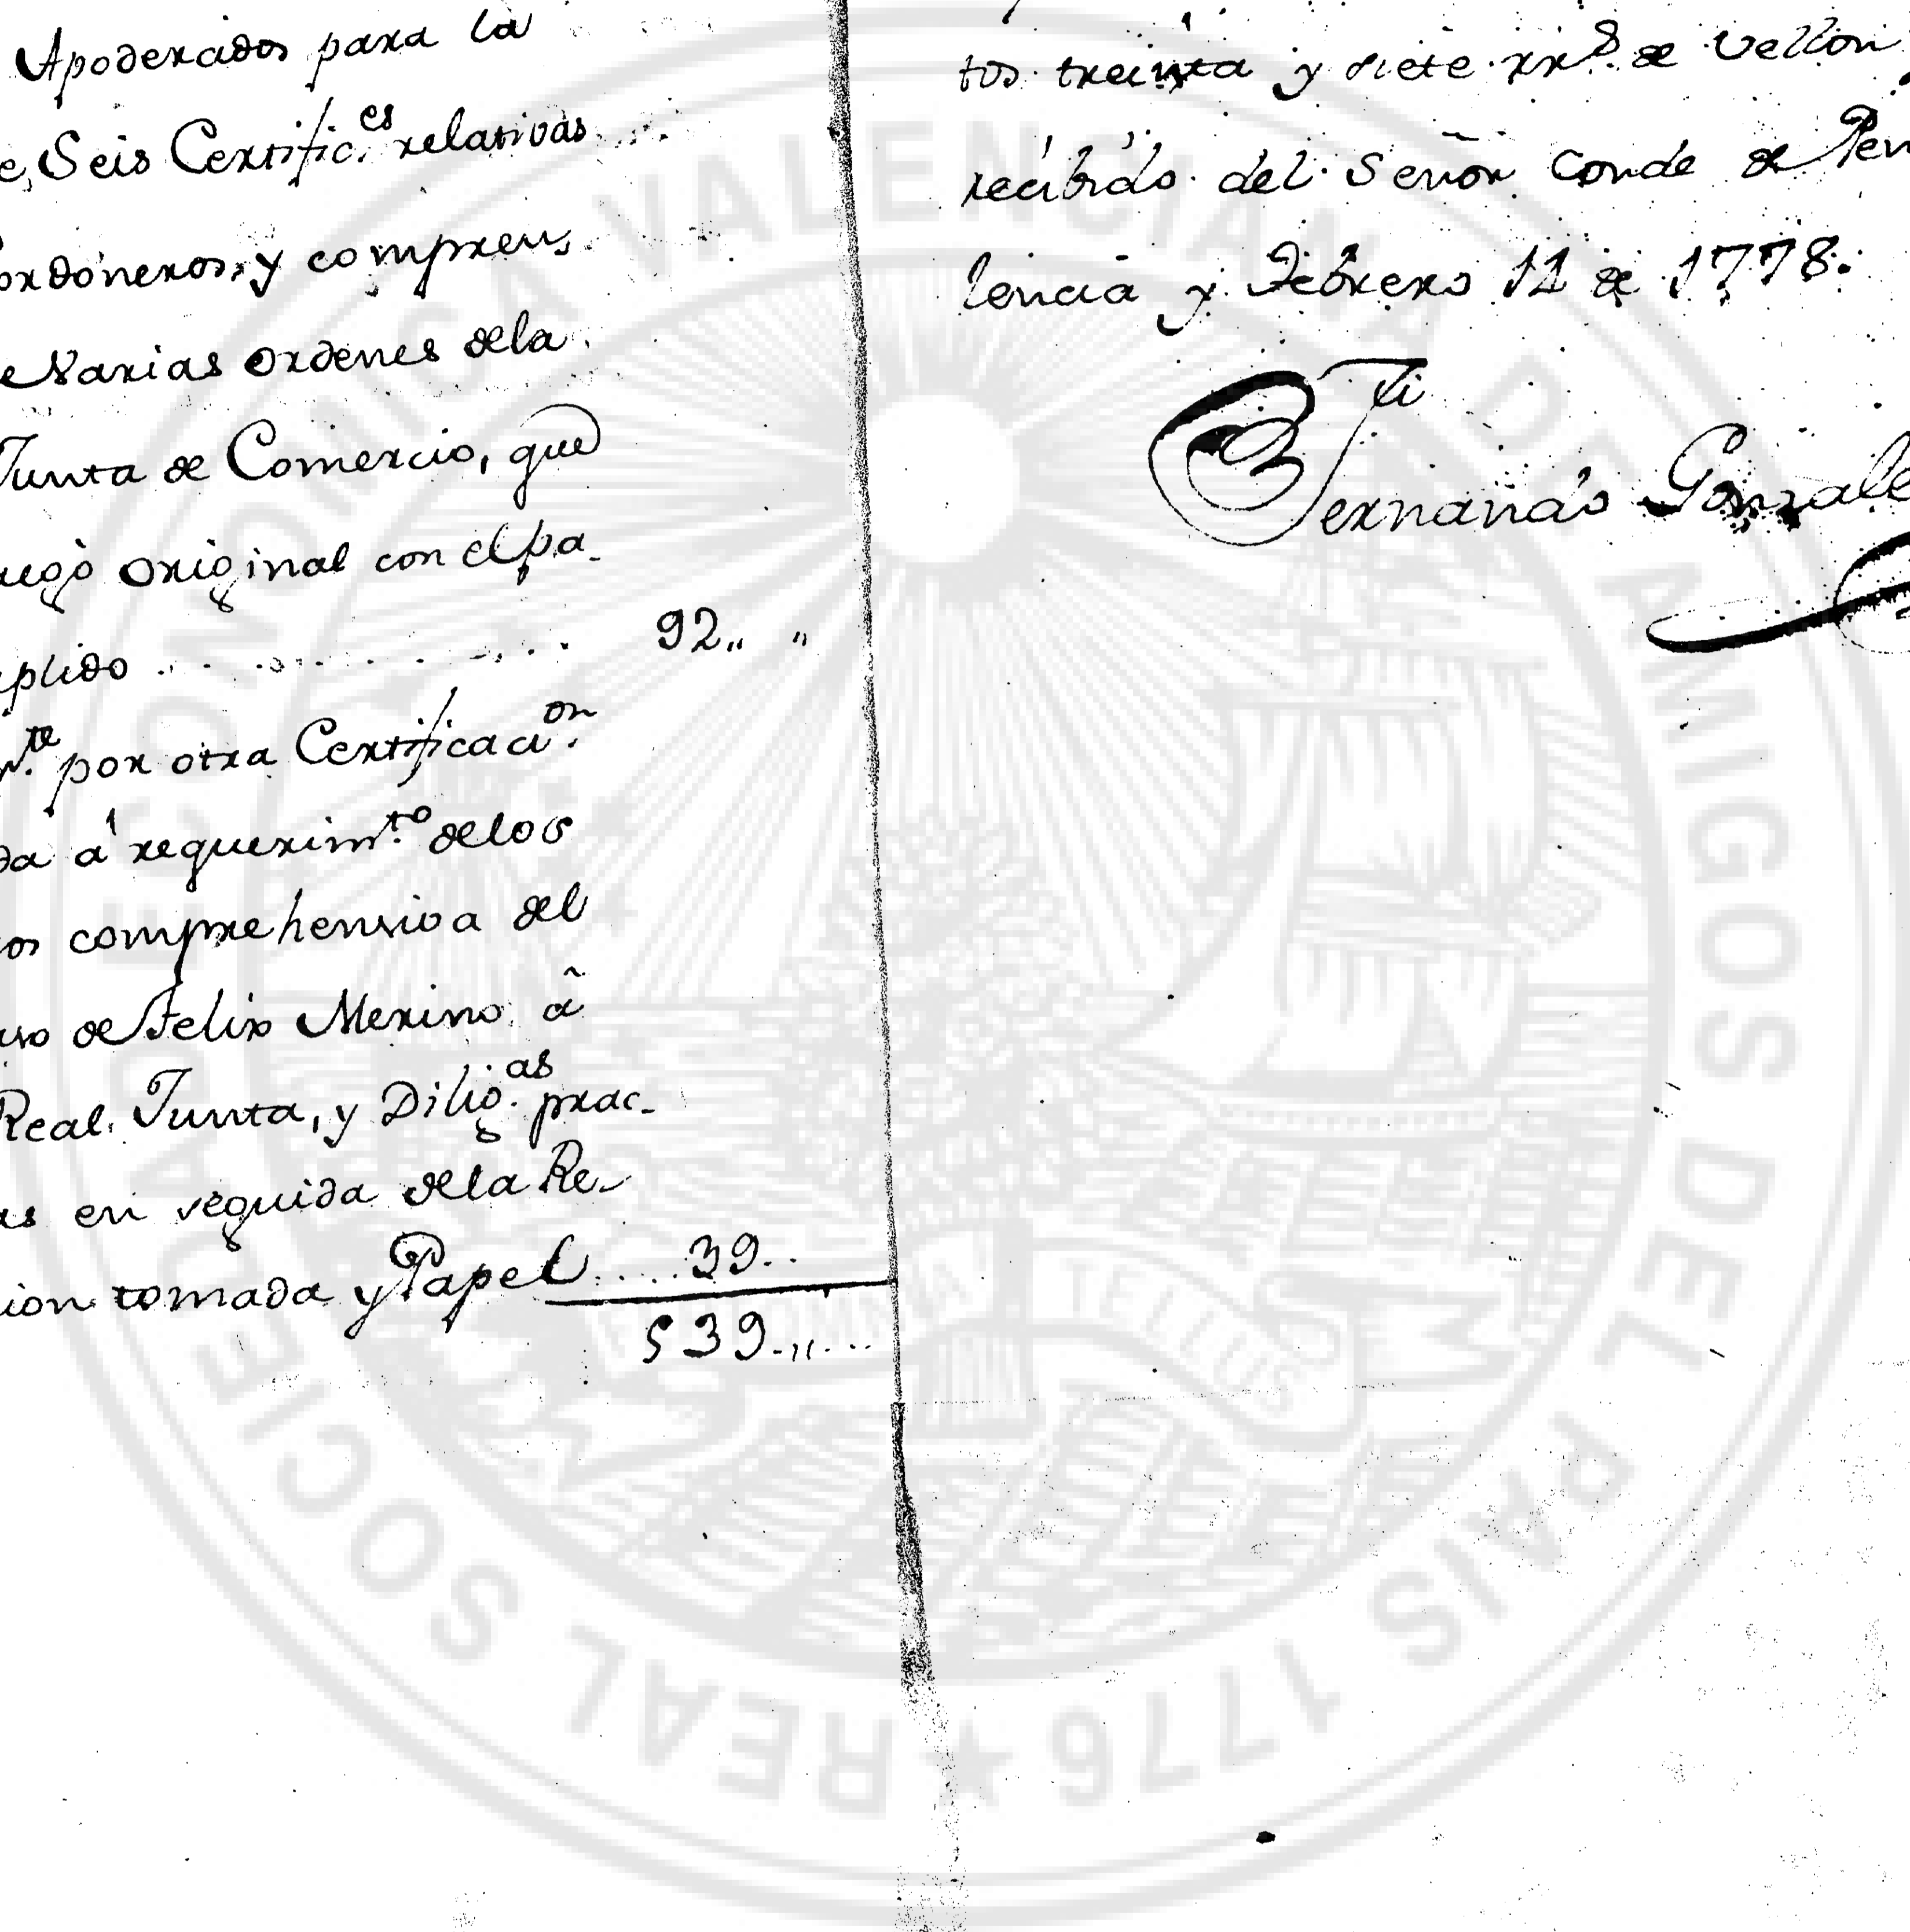 Apoderados para la
e, Seis Certific.es relativas
ordoneros, y comprens
e Varias ordenes dela
Junta de Comercio, que
uego original con el pa-
plido ........... 92,, ,,
m.te por otra Certificaci.on
da á requerim.to delos
os comprehensiva del
uso de Felix Merino â
Real Junta, y Dilig.as prac-
as en seguida dela Re-
cion tomada y Papel .... 39..
539..,,...
tos treinta y siete rr.s de Vellon
recibido del Señor Conde de Pen
lencia y Febrero 11 de 1778.
Fernando Gonzale
REAL SOCIEDAD ECONOMICA VALENCIANA DE AMIGOS DEL PAIS 1776